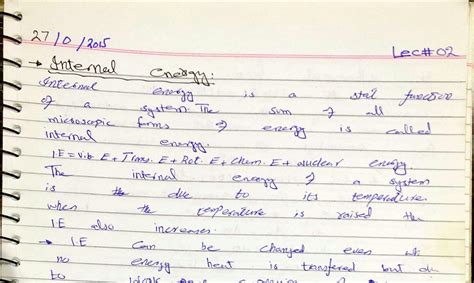 27/0/2015
Lec# 02
→ Internal energy:
Internal energy is a stat function
of a system. The sum of all
microscopic forms of energy is called
internal energy.
I.E = vib E + Trans. E + Rot. E + Chem. E + nuclear energy.
The internal energy of a system
is due to its temperature.
when the temperature is raised the
I.E also increases.
I.E can be changed even wh
no energy heat is transferred but du
to